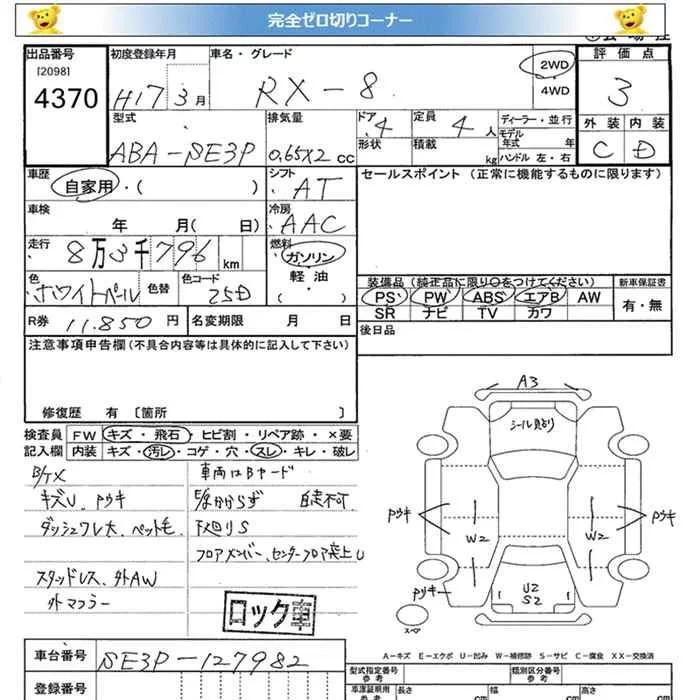 完全ゼロ切りコーナー
出品番号 初度登録年月 車名・グレード 2WD 4WD 評価点
[2098]
4370 H17 3月 RX-8 3
型式 排気量 ドア 定員 ディーラー・並行 外装 内装
ABA-SE3P 0.65X2 CC 4 4人 モデル年式 年 C D
形状 積載 kg ハンドル 左・右
車歴 シフト セールスポイント (正常に機能するものに限ります)
自家用・( ) AT
車検 冷房
年 月( 日) AAC
走行 燃料
8万3千796km ガソリン
軽・油
( )
色 色替 色コード 装備品 (純正品に限り○をつけてください) 新車保証書
ホワイトパール 25D PS PW ABS エアB AW 有・無
SR ナビ TV カワ
R券 11.850円 名変期限 月 日 後日品
注意事項申告欄(不具合内容等は具体的に記入して下さい)
修復歴 有 [箇所 ]
検査員 FW キズ・飛石・ヒビ割・リペア跡・×要
記入欄 内装 キズ・汚レ・コゲ・穴・スレ・キレ・破レ
車両はBヤード
キズU、Pウキ
E/g分からず 自走不可
ダッシュワレ大、ペット毛
下回りS
フロアメンバー、センターフロア突上U
スタッドレス、外AW
外マフラー
ロック車
A3
シール見どり
Pウキ Pウキ
W2 W2
Pウキ
U2
S2
スペア
A-キズ E-エクボ U-凹み W-補修跡 S-サビ C-腐食 XX-交換済
車台番号 SE3P-127982
型式指定番号 参考 類別区分番号 参考
登録番号
車庫証明用 参考 長さ cm 幅 cm 高さ cm